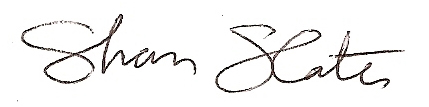 Shan Slater